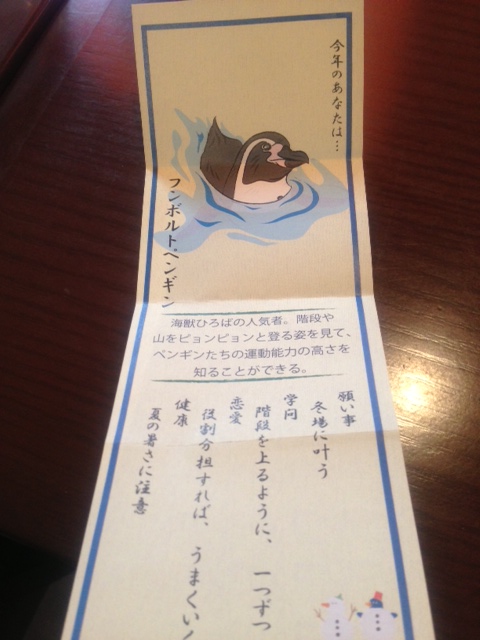 今年のあなたは…
フンボルトペンギン
海獣ひろばの人気者。階段や
山をピョンピョンと登る姿を見て、
ペンギンたちの運動能力の高さを
知ることができる。
願い事
冬場に叶う
学問
階段を上るように、一つずつ
恋愛
役割分担すれば、うまくいく
健康
夏の暑さに注意